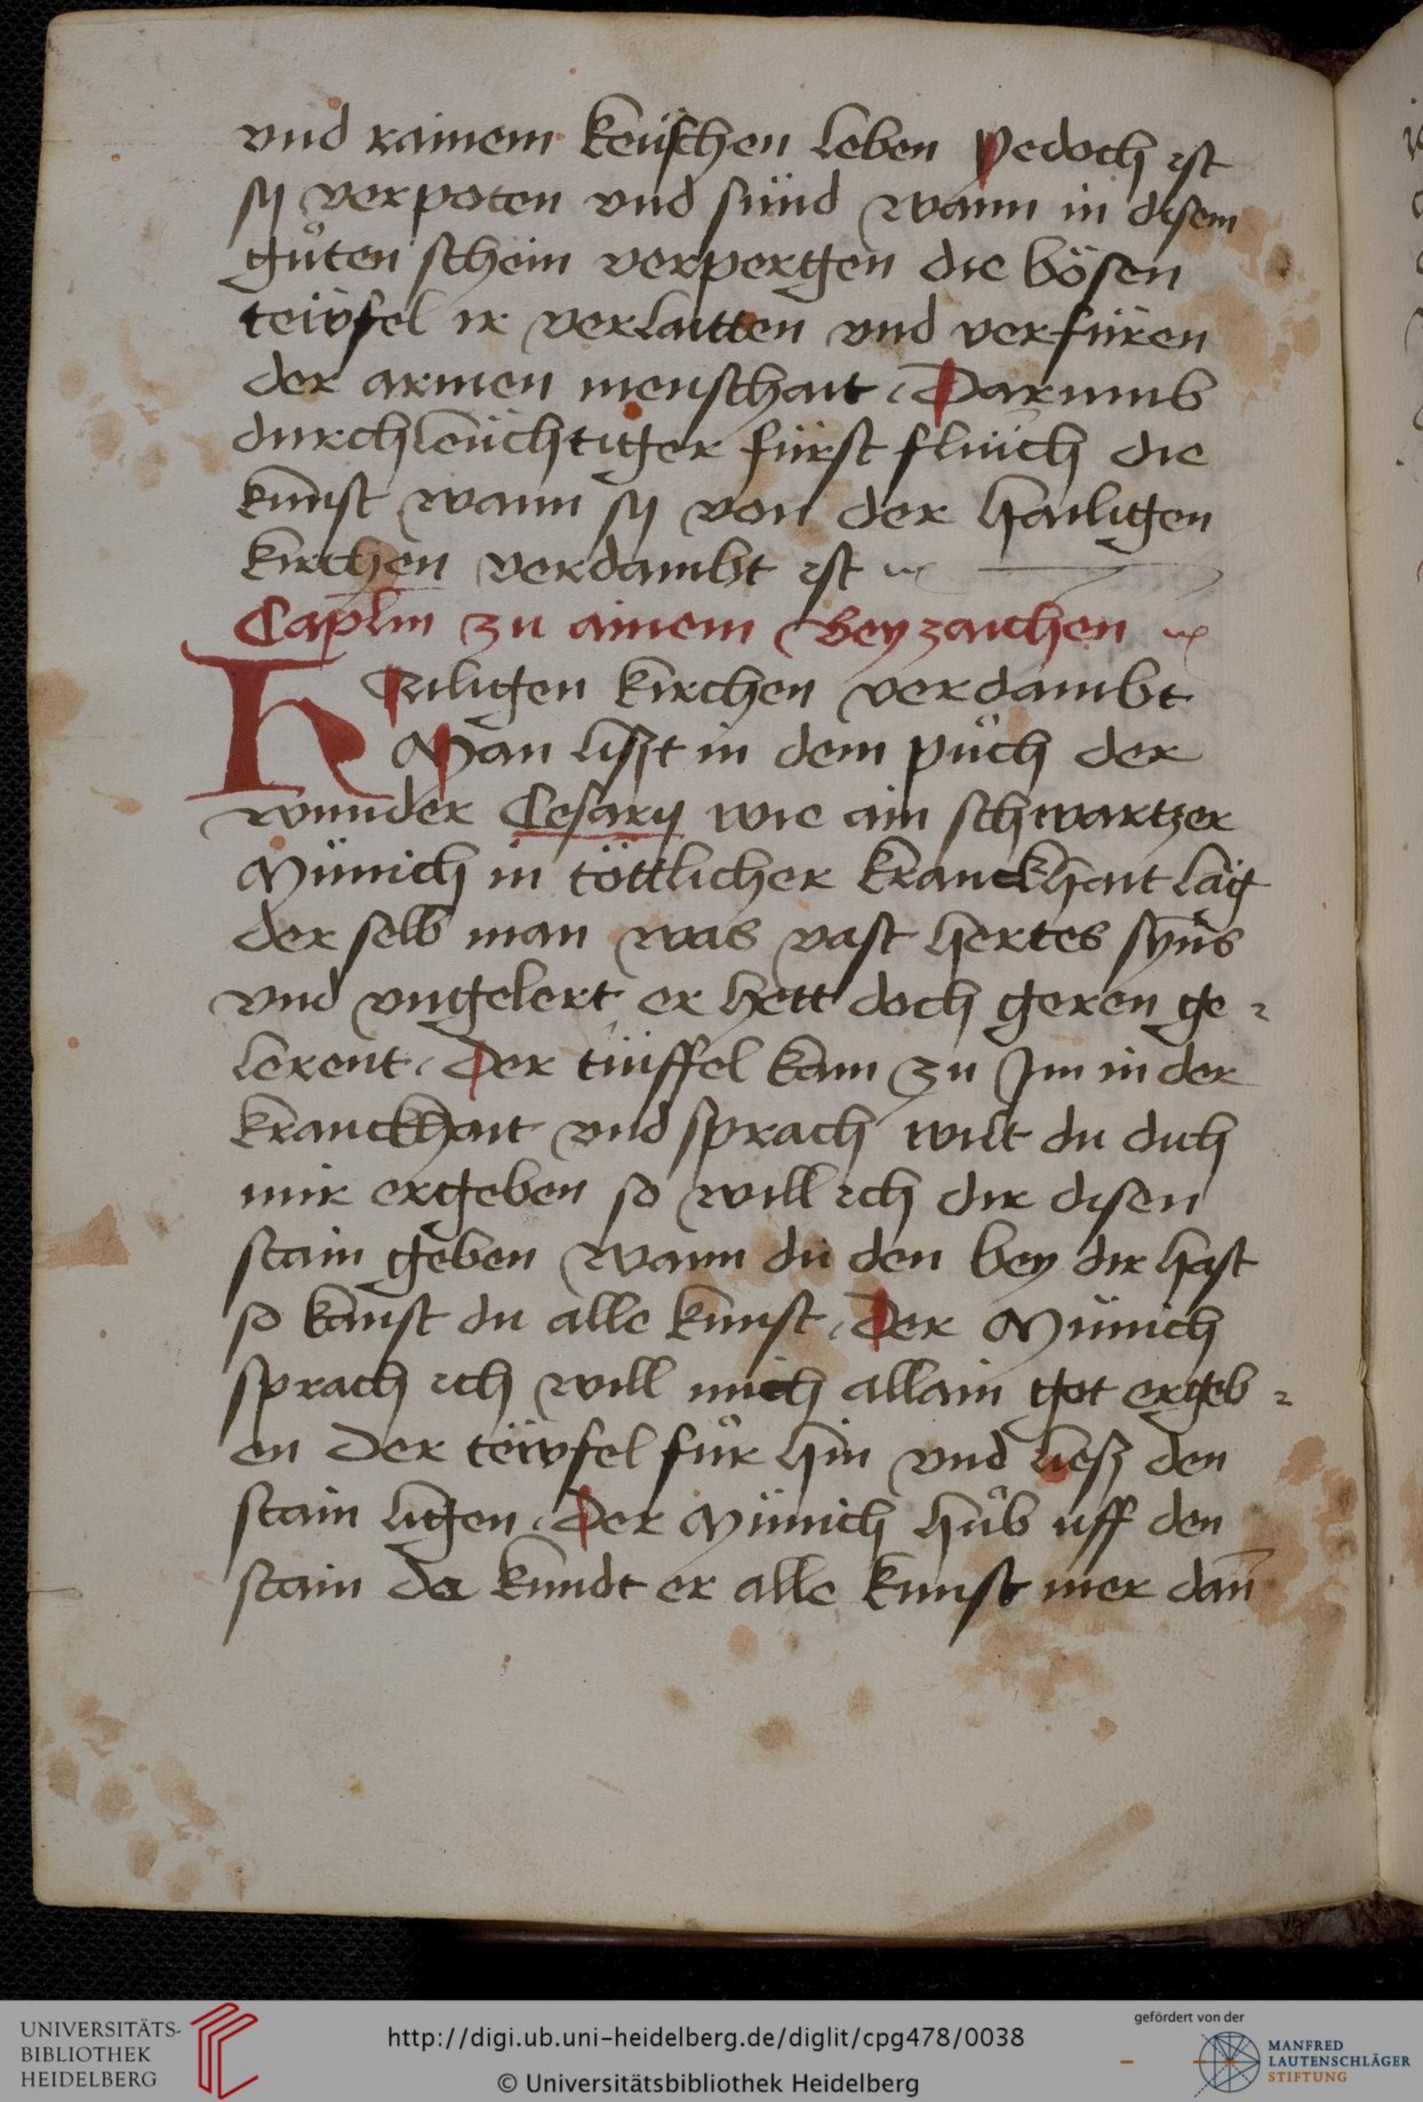 vnd rainem keüschen leben yedoch ist
sÿ verpoten vnd sünd wann in disem
gůten schein verpergen die bösen
teẅfel ir verlaitten vnd verfüren
der armen menschait Darumb
durchleüchtiger fürst flüüch die
kunst wann sÿ von der hailigen
kirchen verdambt ist
Caplm zu ainem Beyzaichen
Hailigen kirchen verdambt
Man lißt in dem půch der
wunder Cesarÿ wie ain schwartzer
Münich in töttlicher kranckhait läg
der selb man was vast hertes sÿns
vnd vngelert er hett doch geren ge-
lerent Der tüiffel kam zu Jm in der
kranckhait vnd sprach wilt du dich
mir ergeben so will ich dir disen
stain geben wann du den bey dir hast
so kanst du alle kunst Der Münich
sprach ich will mich allain got ergeb-
en Der teẅfel fůr hin vnd ließ den
stain ligen Der Münich hůb uff den
stain da kundt er alle kunst mer dañ
UNIVERSITÄTS-
BIBLIOTHEK
HEIDELBERG
http://digi.ub.uni-heidelberg.de/diglit/cpg478/0038
© Universitätsbibliothek Heidelberg
gefördert von der
MANFRED
LAUTENSCHLÄGER
STIFTUNG